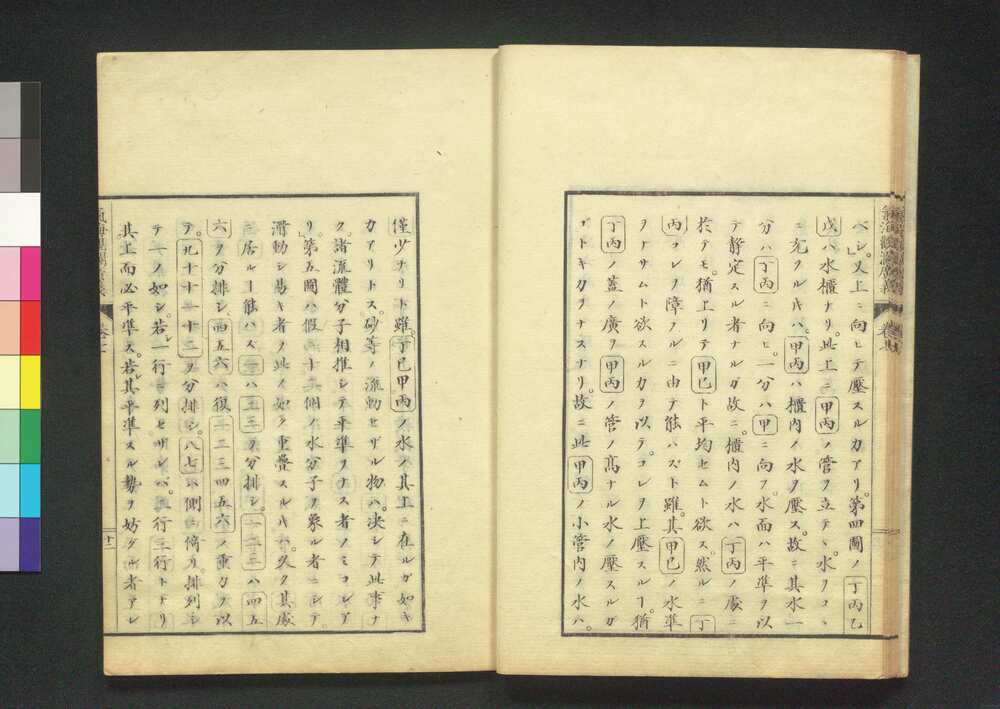 ベシ。又上ニ向ヒテ壓スルカアリ。第四圖ノ丁丙乙
戊ハ水櫃ナリ。此上ニ甲丙ノ管ヲ立テヽ水ヲコヽ
ニ充ツルキハ、甲丙ハ櫃内ノ水ヲ壓ス。故ニ其水一
分ハ丁丙ニ向ヒ。一分ハ甲ニ向フ。水面ハ平準ヲ以
テ静定スル者ナルガ故ニ。櫃内ノ水ハ丁丙ノ處ニ
於テモ。猶上リテ甲巳ト平均セムト欲ス。然ルニ丁
丙コレヲ障フルニ由テ能ハズト雖。其甲巳ノ水準
ヲナサムト欲スルカヲ以テ。コレヲ上壓スルヿ。猶
丁丙ノ蓋ノ廣ヲ甲丙ノ管ノ高ナル水ノ壓スルガ
ゴトキカヲナスナリ。故ニ此甲丙ノ小管内ノ水ハ。
僅少ナリト雖。丁巳甲丙ノ水ノ其上ニ在ルガ如キ
カアリトス。砂等ノ流動セザル物ハ。決シテ此事ナ
ク。諸流體分子相推シテ平準ヲナス者ノミコレア
リ。第五圖ハ假ニ十二個ノ水分子ヲ象ル者ニシテ。
滑動シ易キ者ノ此ノ如ク重疊スルキハ。久ク其處
ニ居ルヿ能ハズ。一ハ二三ヲ分排シ。一二三ハ四五
六ヲ分排シ。四五六ハ復一二三四五六ノ重力ヲ以
テ。九十十一十二ヲ分排シ。八七ハ側ニ倚リ排列シ
テ一ノ如シ。若一行ニ列セザレバ。二行三行トナリ
其上面必平準ス。若其平準スル勢ヲ妨グル者アレ